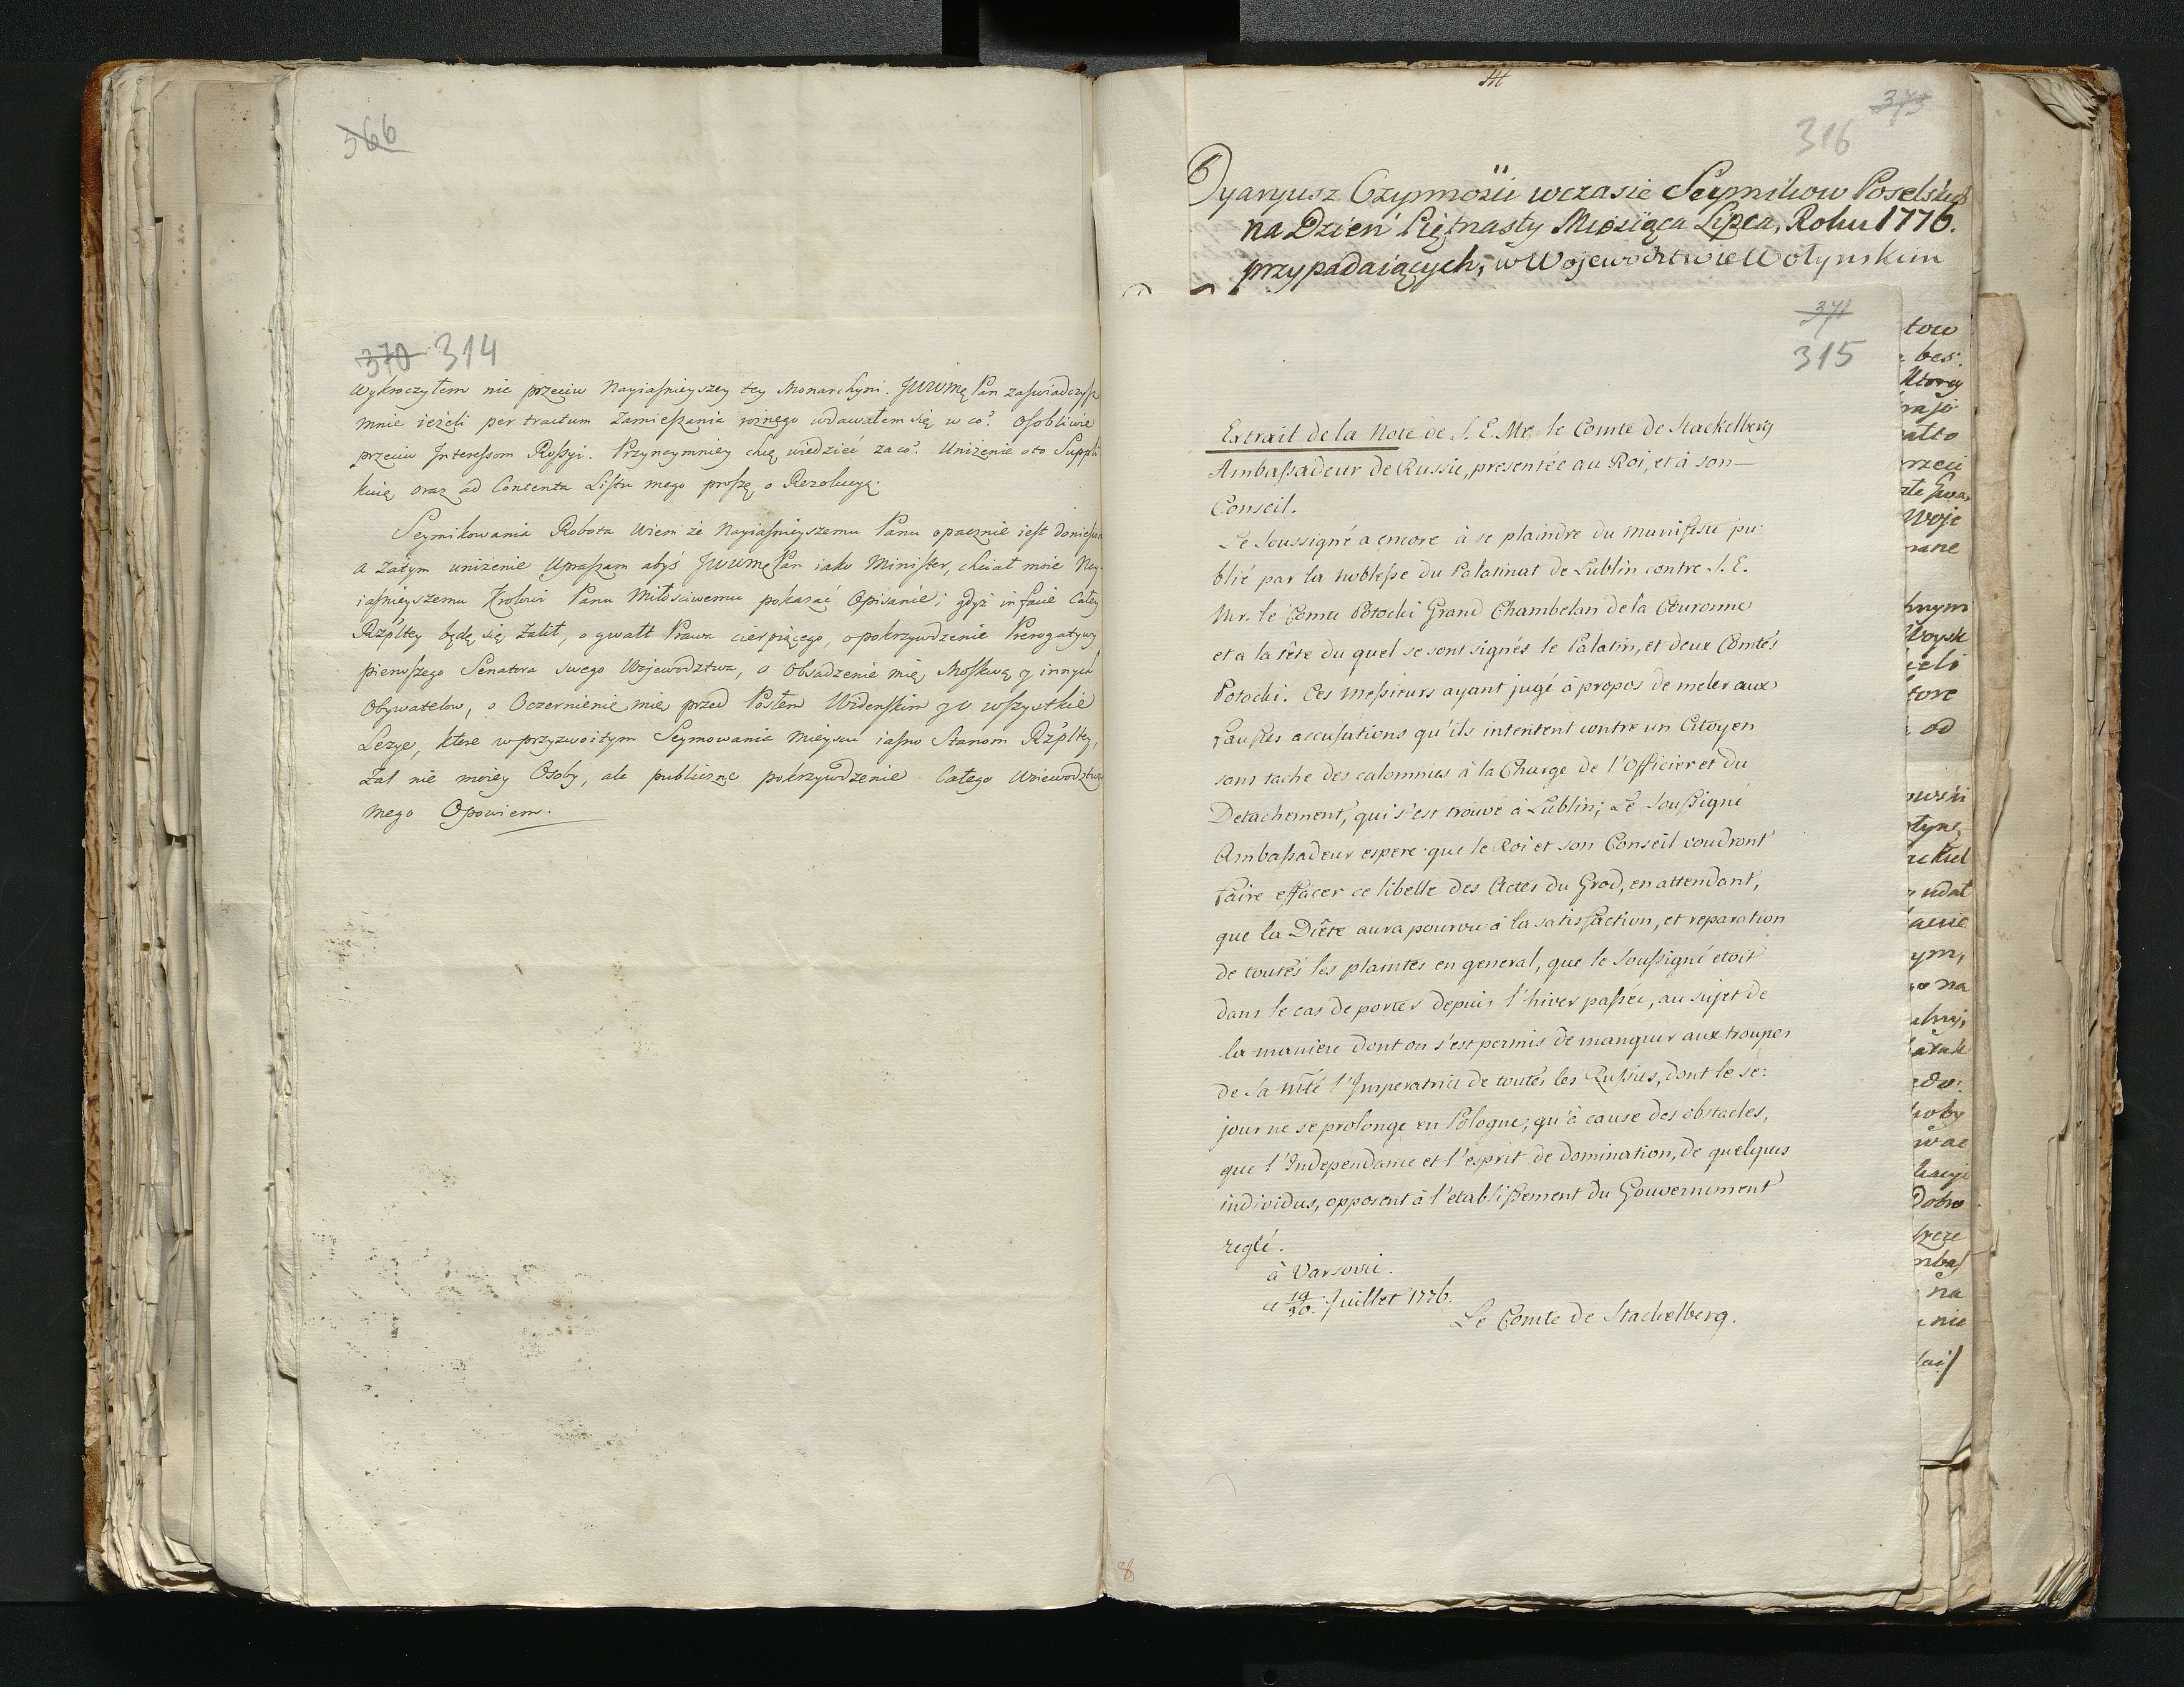 366
370 314
Wykroczyłem nie przeciw Nayiaśnieyszey tey Monarchyni. JWWMę Pan zaświadczysz
mnie ieżeli per tractum Zamieszania rożnego wdawałem się w co? osobliwie
przeciw Interessom Rossyi. Przynaymniey chcę wiedzieć za co? Uniżenie oto Suppli
kuię, oraz ad Contenta Listu mego proszę o Rezolucyą.
Seymikowania Robota Wiem że Nayiaśnieyszemu Panu opacznie iest doniesiona
a Zatym uniżenie Upraszam abyś JWWMę Pan iako Minister, chciał moie Nay
iaśnieyszemu Krolowi Panu Miłościwemu pokazać Opisanie; gdyż in facie Całey
Rzpltey będę się żalił, o gwałt Prawa cierpiącego, o pokrzywdzenie Prerogatywy
pierwszego Senatora swego Wojewodztwa, o Obsadzenie mię Moskwą y innych
Obywatelow, o Oczernienie mię przed Posłem Widenskim y o wszystkie
Lezye, ktore w przyzwoitym Seymowania mieyscu iasno Stanom Rzpltey,
żal nie moiey Osoby, ale publiczne pokrzywdzenie Całego Woiewodztwa
mego Opowiem.
373
316
Dyaryusz Czynnosci wczasie Seymikow Poselskich
na Dzień Piętnasty Miesiąca Lipca, Roku 1776.
przypadaiących, w Wojewodztwie Wołynskim
371
315
Extrait de la Note de S. E. Mr. le Comte de Stackelberg
Ambassadeur de Russie, presentée au Roi, et à son
Conseil.
Le Soussigné a encore à se plaindre du manifeste pu-
blié par la noblesse du Palatinat de Lublin contre S. E.
Mr. le Comte Potocki Grand Chambelan de la Couronne
et à la tête du quel se sont signés le Palatin, et deux Comtes
Potocki. Ces Messieurs ayant jugé à propos de meler aux
fausses accusations qu'ils intentent contre un Citoyen
sans tache des calomnies à la Charge de l'Officier et du
Detachement, qui s'est trouvé à Lublin; Le Soussigné
Ambassadeur espere que le Roi et son Conseil voudront
faire effacer ce libelle des Actes du Grod, en attendant,
que la Diète aura pourvu à la satisfaction, et reparation
de toutes les plaintes en general, que le Soussigné etoit
dans le cas de porter depuis l'hiver passée, au sujet de
la maniere dont on s'est permis de manquer aux troupes
de Sa Mté l'Imperatrice de toutes les Russies, dont le se-
jour ne se prolonge en Pologne, qu'à cause des obstacles,
que l'Independance et l'esprit de domination, de quelques
individus, opposent à l'etablissement du Gouvernement
reglé.
à Varsovie.
ce 19/30. Juillet 1776.
Le Comte de Stackelberg.